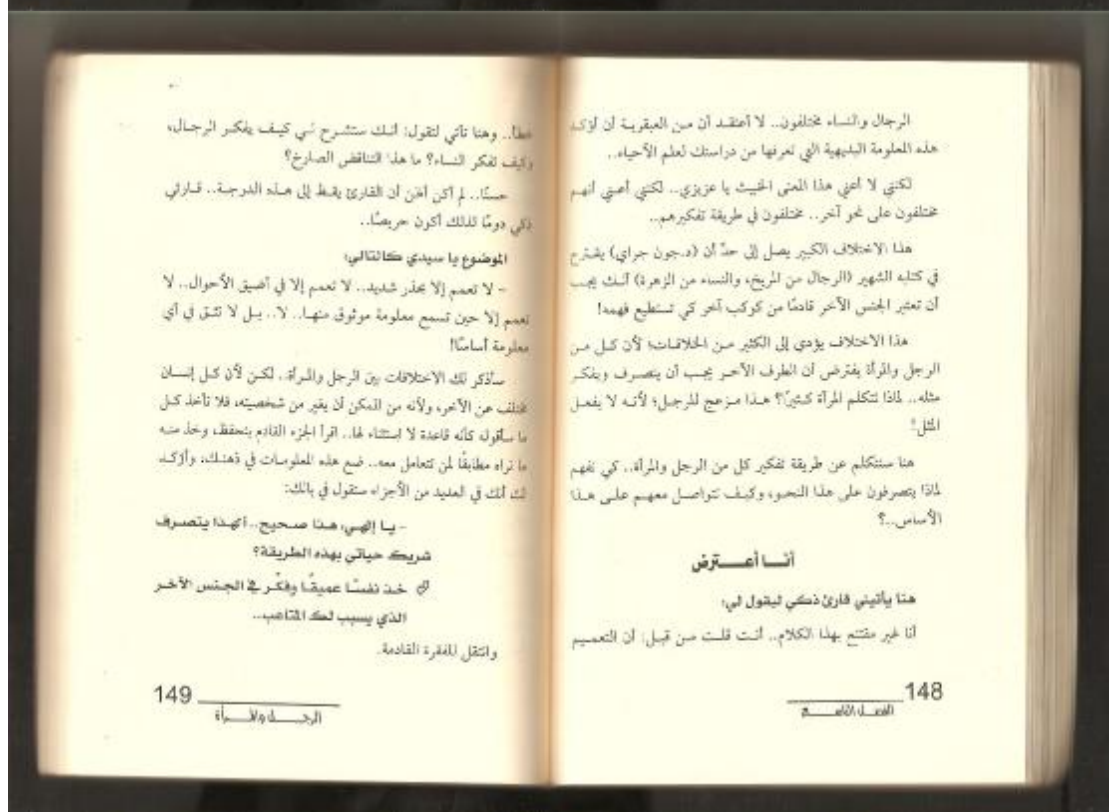 الرجال والنساء مختلفون.. لا أعتقد أن من العبقرية أن أؤكد
هذه المعلومة البديهية التي تعرفها من دراستك لعلم الأحياء..
لكنني لا أعني هذا المعنى الخبيث يا عزيزي.. لكنني أعني أنهم
مختلفون على نحو آخر.. مختلفون في طريقة تفكيرهم..
هذا الاختلاف الكبير يصل إلى حدّ أن (د.جون جراي) يقترح
في كتابه الشهير (الرجال من المريخ، والنساء من الزهرة) أنك يجب
أن تعتبر الجنس الآخر قادمًا من كوكب آخر كي تستطيع فهمه!
هذا الاختلاف يؤدي إلى الكثير من الخلافات؛ لأن كل من
الرجل والمرأة يفترض أن الطرف الآخر يجب أن يتصرف ويفكر
مثله.. لماذا تتكلم المرأة كثيرًا؟ هذا مزعج للرجل؛ لأنه لا يفعل
المثل!
هنا سنتكلم عن طريقة تفكير كل من الرجل والمرأة.. كي نفهم
لماذا يتصرفون على هذا النحو، وكيف نتواصل معهم على هذا
الأساس..؟
أنا أعترض
هنا يأتيني قارئ ذكي ليقول لي:
أنا غير مقتنع بهذا الكلام.. أنت قلت من قبل: أن التعميم
148
الفصل التاسع
خطأ.. وهنا تأتي لتقول: أنك ستشرح لي كيف يفكر الرجال،
وكيف تفكر النساء؟ ما هذا التناقض الصارخ؟
حسنًا.. لم أكن أظن أن القارئ يقظ إلى هذه الدرجة.. قارئي
ذكي دومًا لذلك أكون حريصًا..
الموضوع يا سيدي كالتالي:
- لا تعمم إلا بحذر شديد.. لا تعمم إلا في أضيق الأحوال.. لا
تعمم إلا حين تسمع معلومة موثوق منها.. لا.. بل لا تثق في أي
معلومة أساسًا!
سأذكر لك الاختلافات بين الرجل والمرأة.. لكن لأن كل إنسان
مختلف عن الآخر، ولأنه من الممكن أن يغير من شخصيته، فلا تأخذ كل
ما سأقوله كأنه قاعدة لا استثناء لها.. اقرأ الجزء القادم بتحفظ، وخذ منه
ما تراه مطابقًا لمن تتعامل معه.. ضع هذه المعلومات في ذهنك، وأؤكد
لك أنك في العديد من الأجزاء ستقول في بالك:
- يا إلهي، هذا صحيح.. أكهذا يتصرف
شريك حياتي بهذه الطريقة؟
خذ نفسًا عميقًا وفكّر في الجنس الآخر
الذي يسبب لك المتاعب..
وانتقل للفقرة القادمة.
149
الرجل والمرأة